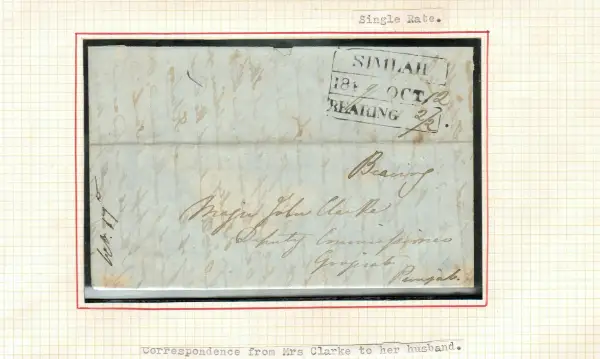 Single Rate.
SIMLAH
OCT. 12
BEARING
Bearing
Major John Clarke
Deputy Commissioner
Punjab.
Correspondence from Mrs Clarke to her husband.